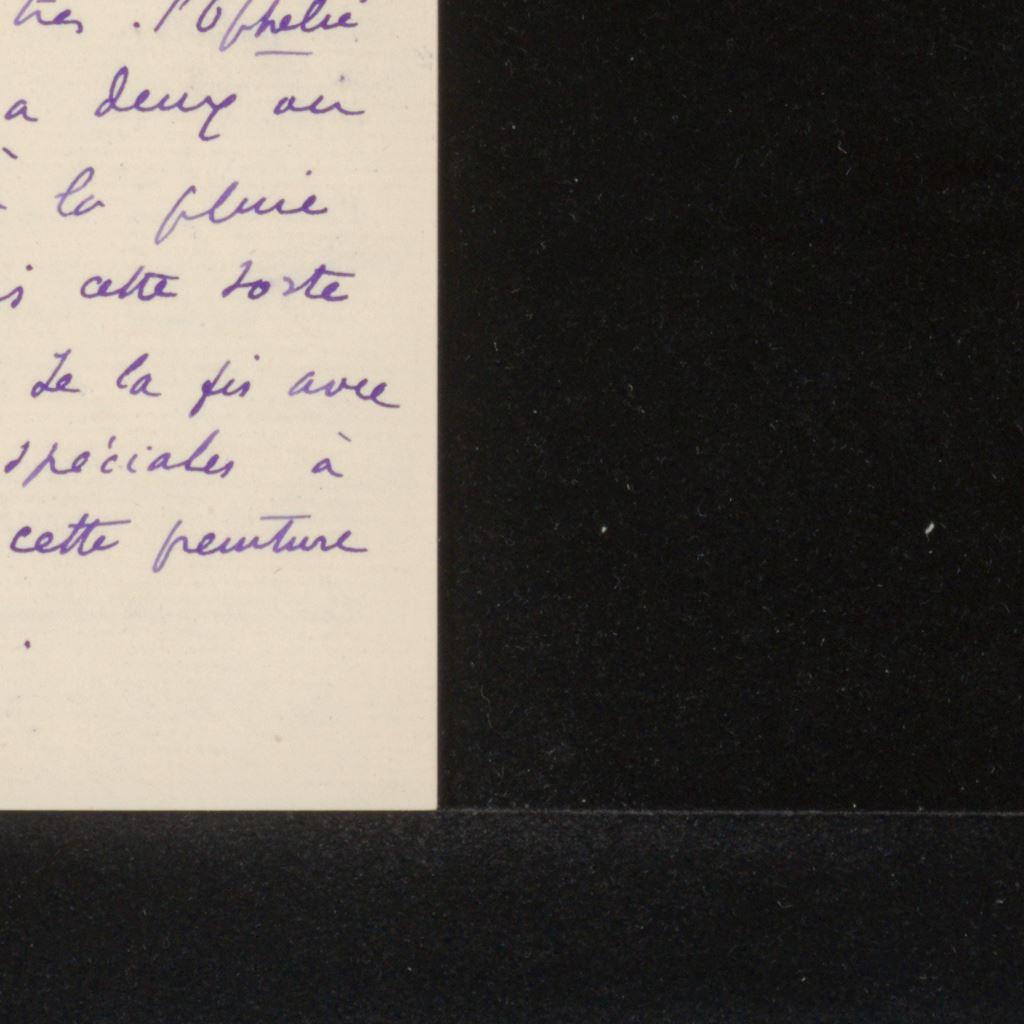 tres. l'Ophelie
a deux ou
à la pluie
is cette sorte
Je la fis avec
spéciales à
cette peinture
.